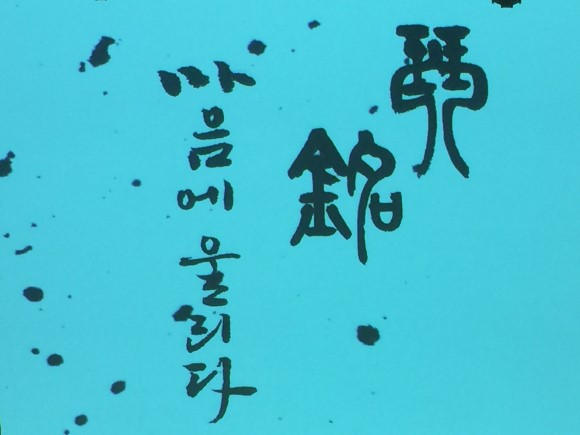 琴銘
마음에 울리다